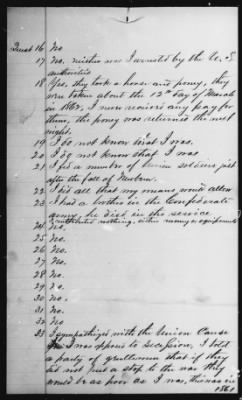 Quest 16 No
17 No, neither was I arrested by the U. S.
authorities
18 Yes, they took a horse and poney, they
were taken about the 12th day of March
in 1862, I never received any pay for
them, the poney was returned the next
night.
19 I do not know that I was.
20 I do not know that I was
21 I fed a number of Union soldiers just
after the fall of Newbern.
22 I did all that my means would allow
23 I had a brother in the Confederate
army, he died in the service.
I contributed nothing, either money or equipments
24 No.
25 No.
26 No.
27 No.
28 No.
29 No.
30 No.
31 No.
32 No
33 I sympathized with the Union Cause
I was opposed to secession, I told
a party of gentlemen that if they
did not put a stop to the war they
would be as poor as I was, this was in
1861